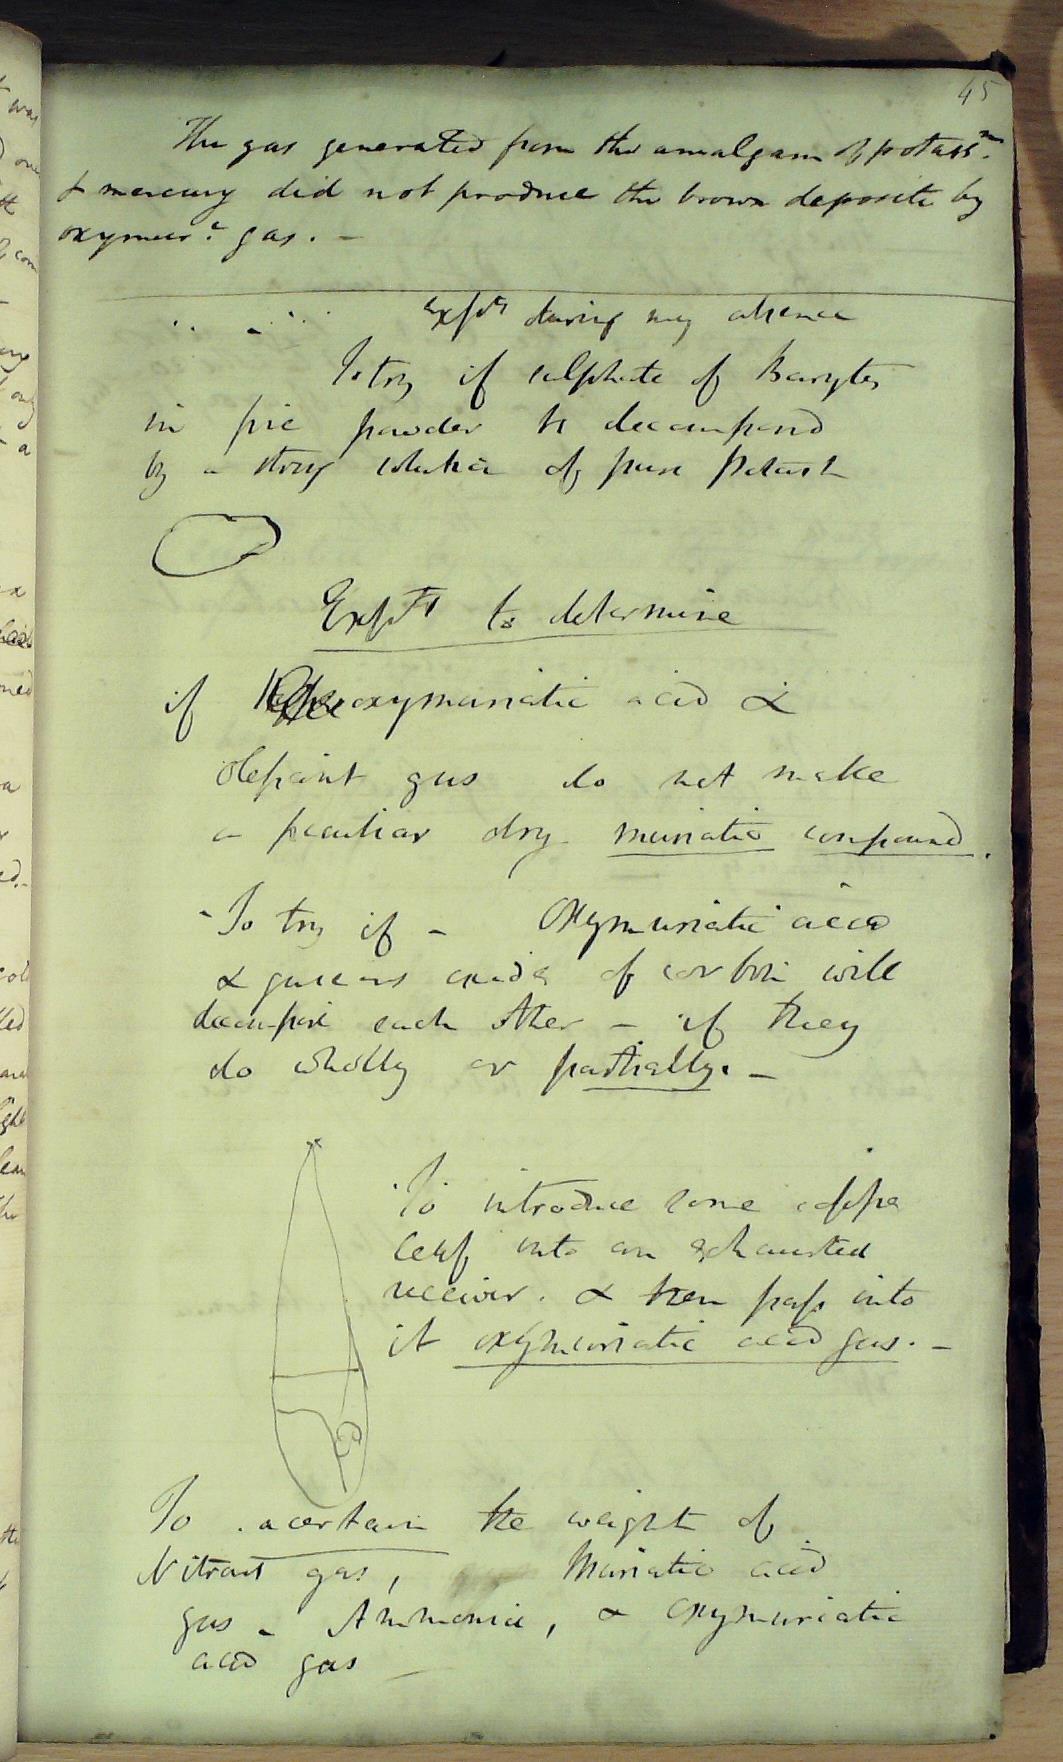 45
The gas generated from the amalgam of potassm.
& mercury did not produce the brown deposite by
oxymurc. gas. –
Expts during my absence
To try if sulphate of Barytes
in fine powder be decomposed
by a strong solution of pure Potash
Expts to determine
if oxymuriatic acid &
Olefiant gas do not make
a peculiar dry muriatic compound.
- To try if – Oxymuriatic acid
& gaseous oxide of carbon will
decompose each other – if they
do wholly or partially. –
To introduce some copper
leaf into an exhausted
receiver. & then pass into
it oxymuriatic acid gas. –
To acertain the weight of
Nitrous gas, Muriatic acid
gas – Ammonia, & oxymuriatic
acid gas –